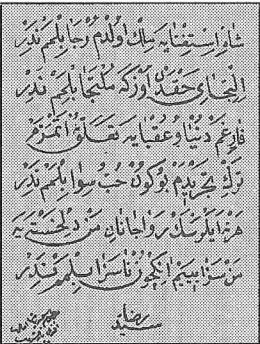 شاه استغنایه سالك اولدم رجا بلمم ندر
التجای حقدن اوزکه ملتجا بلمم ندر
فارغم دنیا و عقبایه تعلق ایتمزم
ترك تجرید م بوکون حب سوا بلمم ندر
هرنه ایلرسك روا جانان من دلخسته یه
من سزا بینم انکچون ناسزا بلمم ندر
سید رضا